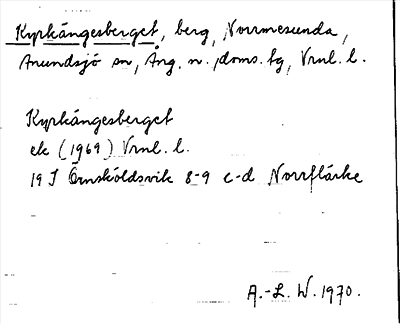 Kyrkängesberget, berg, Norrmesunda,
Anundsjö sn, Ång. n. doms. tg, Vrnl. l.
Kyrkängesberget
ek (1969) Vrnl. l.
19 J Örnsköldsvik 8-9 c-d Norrflärke
A.-L. W. 1970.